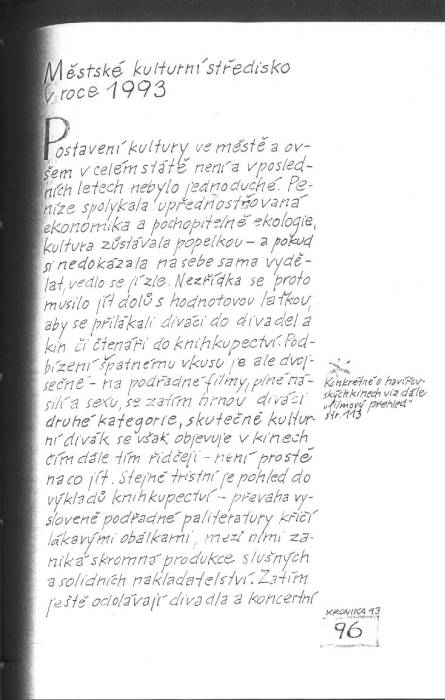 Městské kulturní středisko
v roce 1993
Postavení kultury ve městě a ov-
šem v celém státě není a v posled-
ních letech nebylo jednoduché. Pe-
níze spolykala upřednostňovaná
ekonomika a pochopitelně ekologie,
kultura zůstávala popelkou – a pokud
si nedokázala na sebe sama vydě-
lat, vedlo se jí zle. Nezřídka se proto
musilo jít dolů s hodnotovou laťkou,
aby se přilákali diváci do divadel a
kin či čtenáři do knihkupectví. Pod-
bízení špatnému vkusu je ale dvoj-
sečné – na podřadné filmy, plné ná-
silí a sexu, se zatím hrnou diváci
druhé kategorie, skutečně kultur-
ní divák se však objevuje v kinech
čím dále tím řidčeji – není prostě
na co jít. Stejně tristní je pohled do
výkladů knihkupectví – převaha vy-
sloveně podřadné paliteratury křičí
lákavými obálkami, mezi nimi za-
niká skromná produkce slušných
a solidních nakladatelství. Zatím
ještě odolávají divadla a koncertní
Konkrétně o havířov-
ských kinech viz dále
"filmový přehled"
str. 113
KRONIKA 93
96